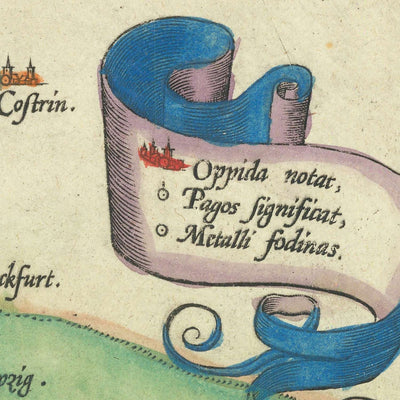 Coſtrin.
Oppida notat,
Pagos ſignificat,
Metalli fodinas.
ckfurt.
pzig.